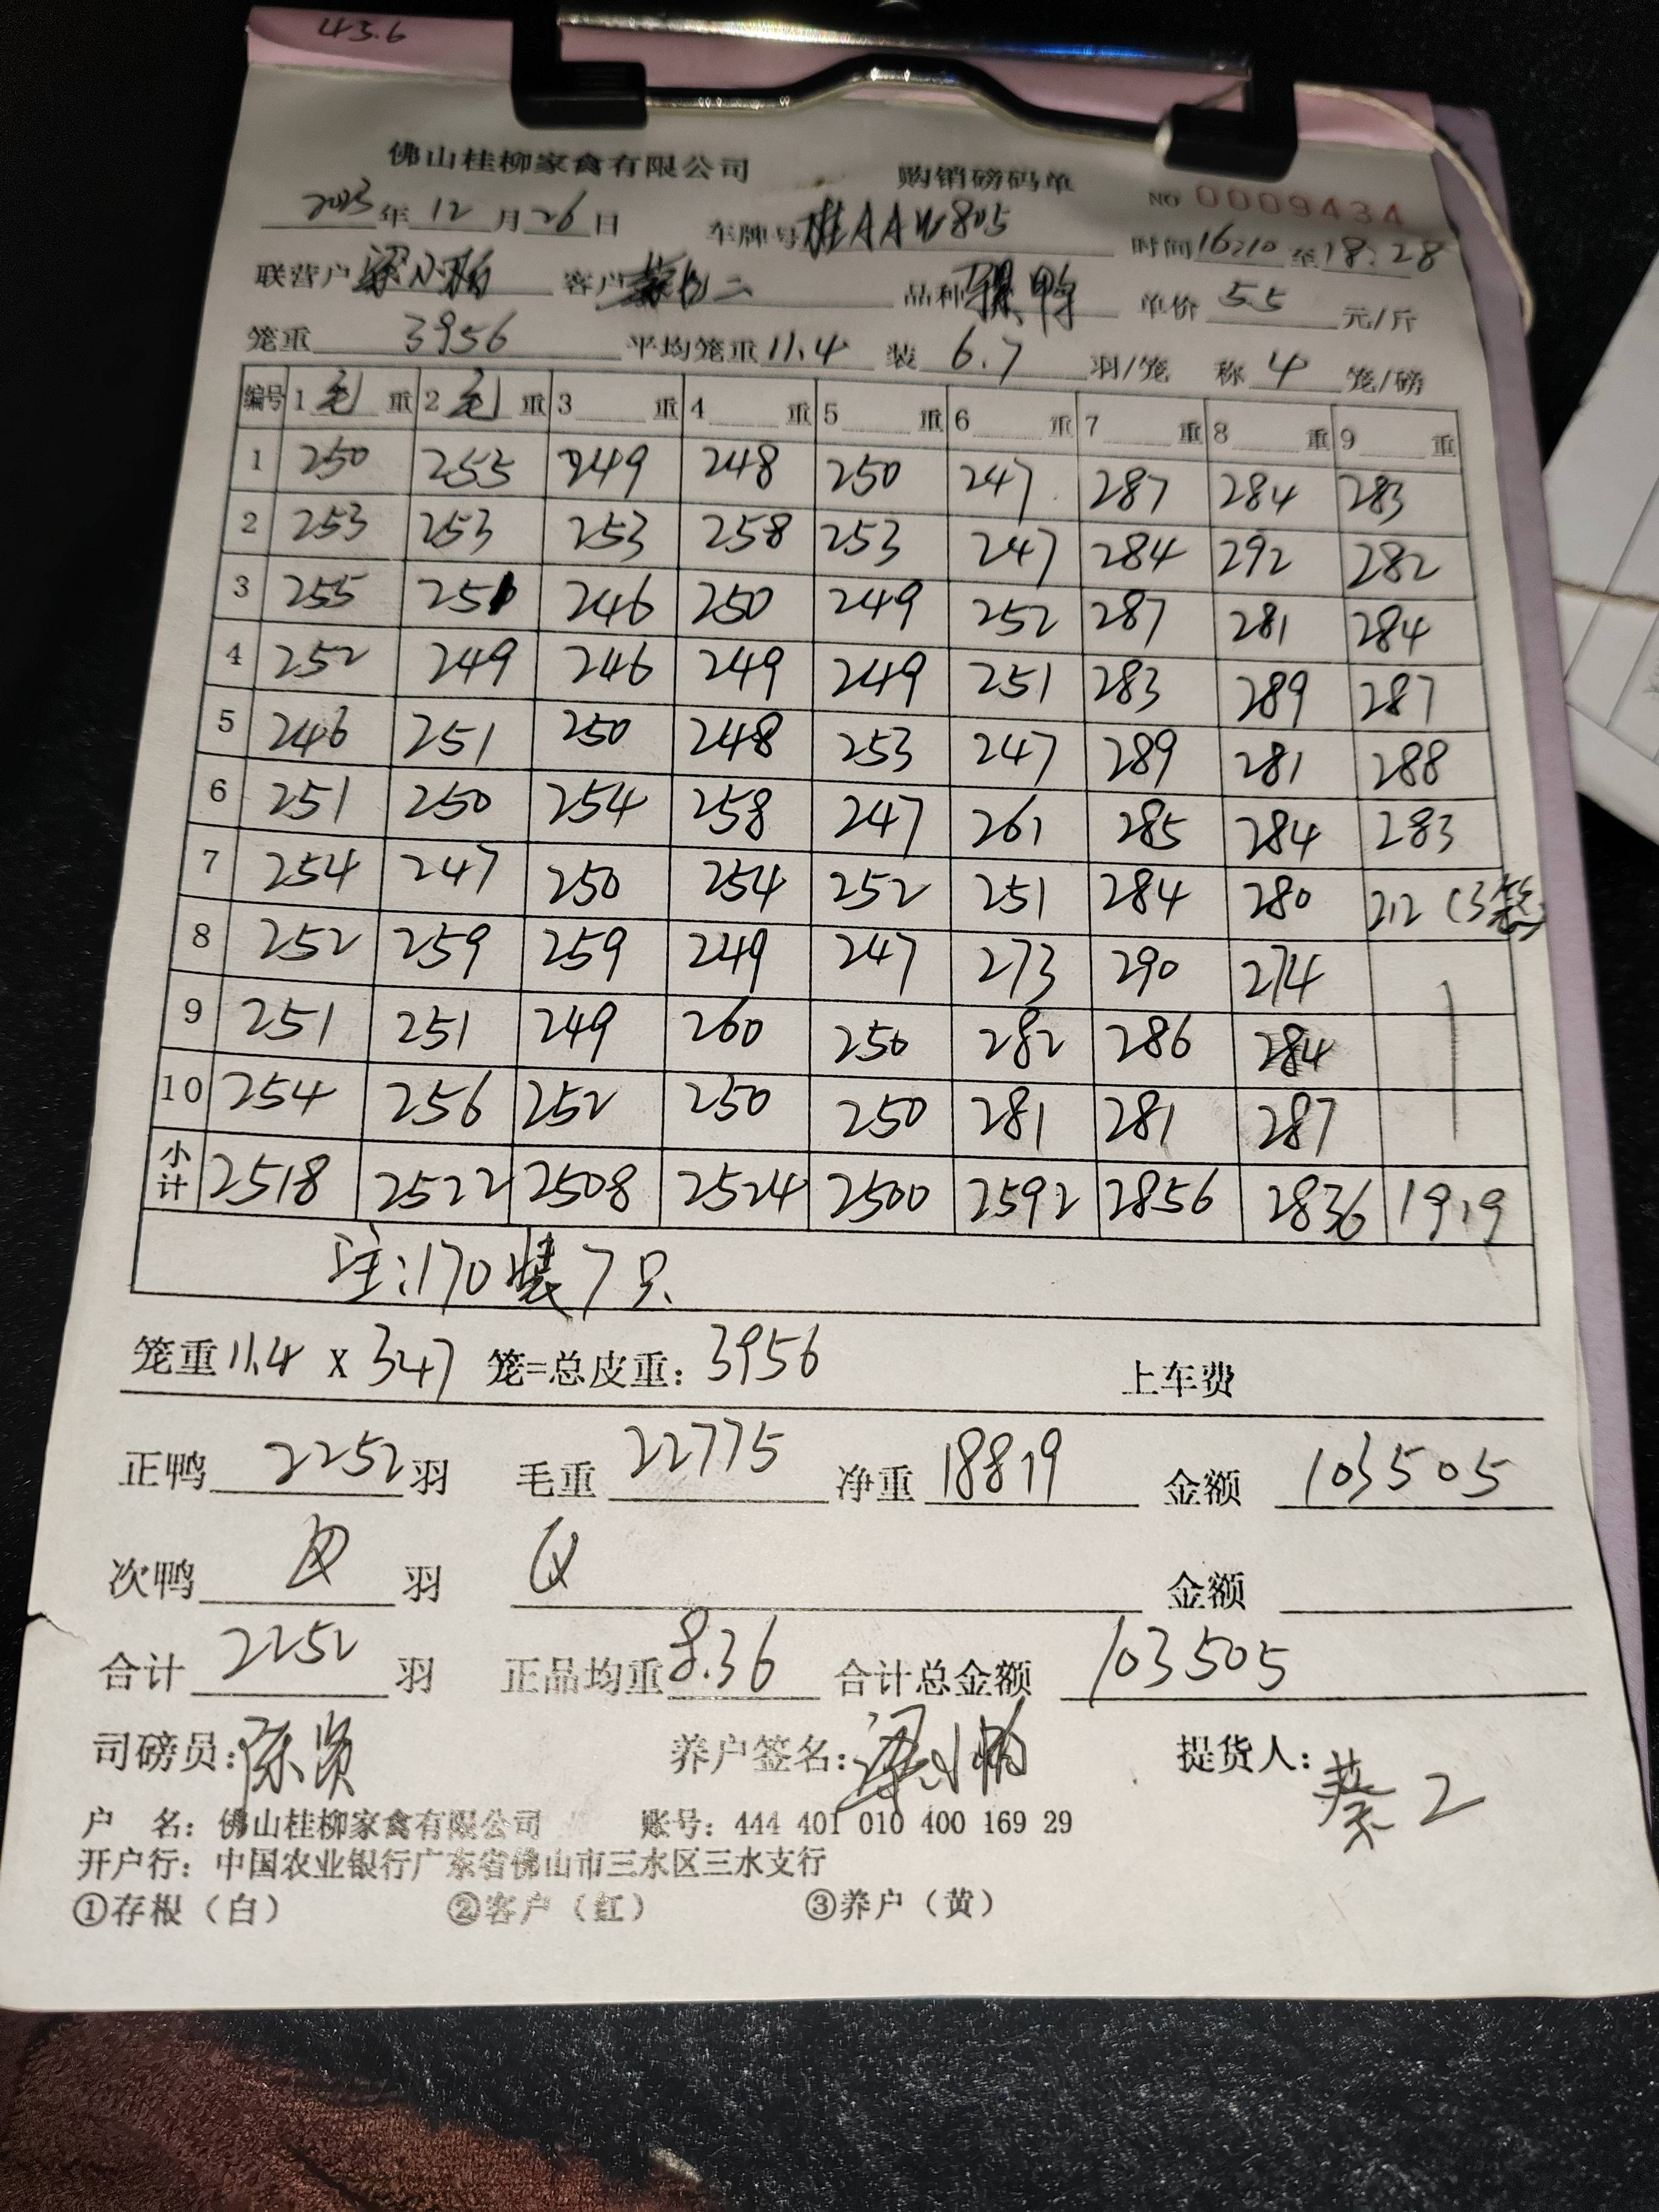 43.6
佛山桂柳家禽有限公司 购销磅码单 NO 0009434
2025年12月26日 车牌号桂AAW805 时间16:10至18:28
联营户 客户 品种 鸭 单价5.5元/斤
笼重3956 平均笼重11.4 装6.7羽/笼 称4笼/磅
编号 1毛重 2毛重 3重 4重 5重 6重 7重 8重 9重
1 250 253 249 248 250 247 287 284 283
2 253 253 253 258 253 247 284 292 282
3 255 251 246 250 249 252 287 281 284
4 252 249 246 249 249 251 283 289 287
5 246 251 250 248 253 247 289 281 288
6 251 250 254 258 247 261 285 284 283
7 254 247 250 254 252 251 284 280 212(3笼)
8 252 259 259 249 247 273 290 274
9 251 251 249 260 250 282 286 284
10 254 256 252 250 250 281 281 287
小计 2518 2522 2508 2524 2500 2592 2856 2836 1919
注:170装7只
笼重11.4 X 347笼=总皮重:3956 上车费
正鸭2252羽 毛重22775 净重18819 金额103505
次鸭 羽 金额
合计2252羽 正品均重8.36 合计总金额103505
司磅员:陈 养户签名:梁小 提货人:蔡2
户 名:佛山桂柳家禽有限公司 账号:444 401 010 400 169 29
开户行:中国农业银行广东省佛山市三水区三水支行
①存根(白) ②客户(红) ③养户(黄)